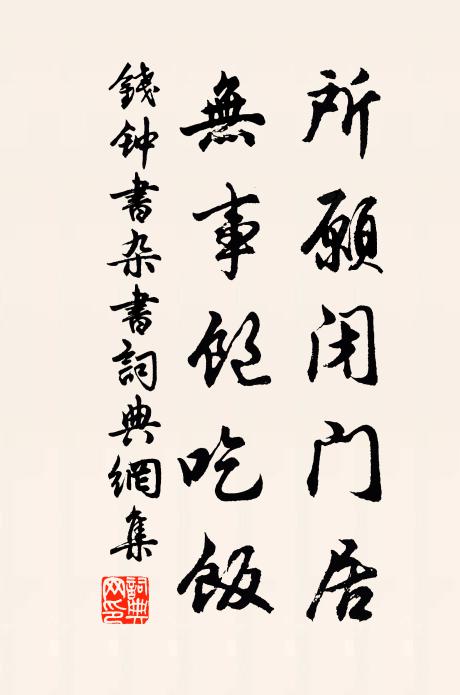 所願闭门居
無事飽吃飯
錢钟書杂書詞典網集
詞典
网印